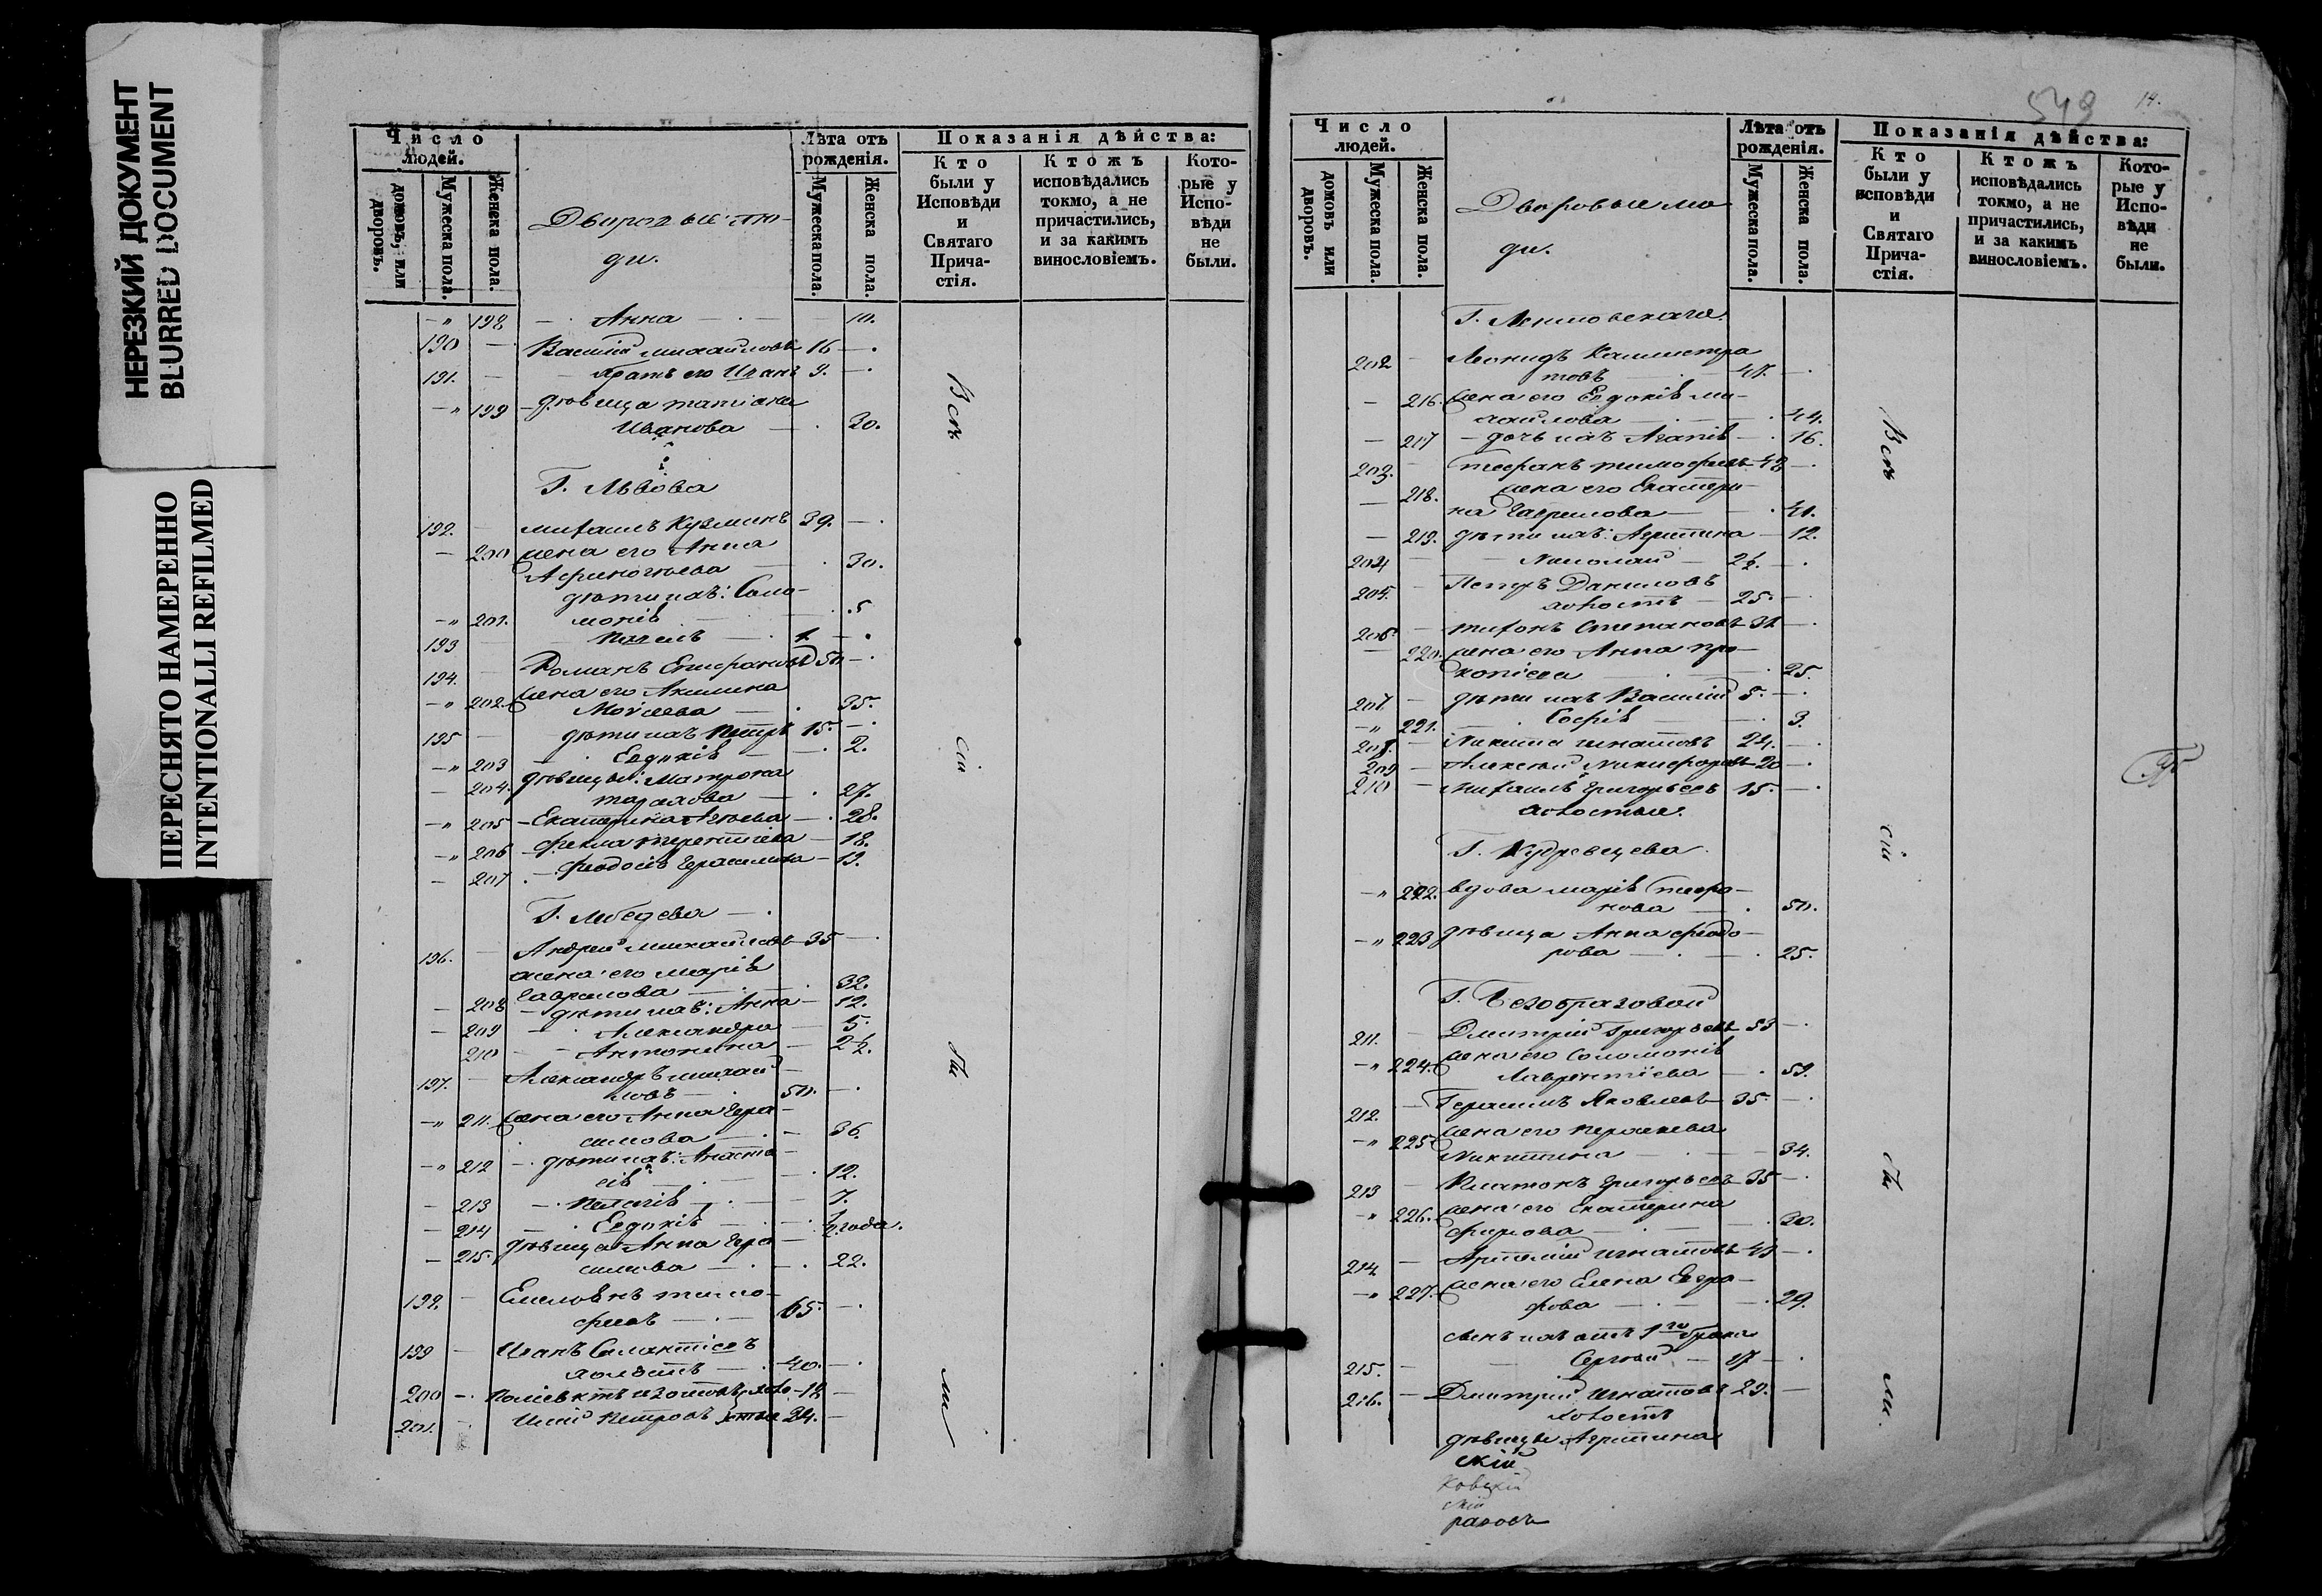 НЕРЕЗКИЙ ДОКУМЕНТ
BLURRED DOCUMENT
ПЕРЕСНЯТО НАМЕРЕННО
INTENTIONALLI REFILMED
Число людей.
Лѣта отъ рожденія.
Показанія дѣйства:
домовъ, или дворовъ.
Мужеска пола.
Женска пола.
Дворовые лю-
ди.
Мужеска пола.
Женска пола.
Кто были у Исповѣди и Святаго Прича-стія.
Ктожъ исповѣдались токмо, а не причастились, и за какимъ винословіемъ.
Кото-рые у Испо-вѣди не были.
" 198 Анна 10.
190 Василій Михайловъ 16
191. Братъ его Иванъ 9.
" 199 дѣвица Татіана
Иванова 30.
Г. Львова
192. Михаилъ Кузминъ 39.
200 жена его Анна
30.
дѣти ихъ: Соло-
" 201. монія 5
193 Павелъ 1.
194. Романъ Епифановъ 50
" 202. жена его Акилина
Моѵсеева 35.
195 дѣти ихъ Петръ 15.
" 203 Евдокія 2.
204. дѣвицы: Матрона
Тарахова 27.
" 205 Екатерина 28.
" 206 Фекла Терентіева 18.
207 Феодосія Герасимова 19.
Г. Лебедева
196. Андрей Михайловъ 35
жена его Марія
208 Гаврилова 32.
209 дѣти ихъ: Анна 12.
210 Александра 5.
Антонина 2½.
197. Александръ Михай-
ловъ 50.
" 211. жена его Анна Гера-
симова 36.
" 212 дѣти ихъ: Анаста-
сія 12.
213 Пелагія 7.
214 Евдокія ½ года.
215. дѣвица Анна Гера-
симова 22.
198. Тимо-
феевъ 65.
199 Иванъ
холостъ 40.
200 Поліевктъ 18
201. Илій Петровъ 24.
Всѣ
сіи
бы
ли
543
14.
Число людей.
Лѣта отъ рожденія.
Показанія дѣйства:
домовъ или дворовъ.
Мужеска пола.
Женска пола.
Дворовые лю
ди.
Мужеска пола.
Женска пола.
Кто были у исповѣди и Святаго Прича-стія.
Ктожъ исповѣдались токмо, а не причастились, и за какимъ винословіемъ.
Кото-рые у Испо-вѣди не были.
202 Леонидъ Каллистра
товъ 47.
216. жена его Евдокія Ми-
хайлова 44.
217 дочь ихъ Агапія 16.
203. Стефанъ Тимофеевъ 42
218. жена его Екатери-
на Гаврилова 41.
219. дѣти ихъ: Агриппина 12.
204 Николай 2½.
205. Петръ Даниловъ
холостъ 25.
206. Тихонъ Степановъ 31
220. жена его Анна Про-
копіева 25.
207. дѣти ихъ Василій 5.
" 221. Софія 3.
208. Никита Игнатовъ 24.
209 Алексѣй Никифоровъ 20
210 Михаилъ Григорьевъ 15.
холостые.
Г. Кудрявцева
" 222. вдова Марія Стефа-
нова 50.
" 223 дѣвица Анна Феодо-
рова 25.
Г. Безобразовой
211. Дмитрій Григорьевъ 53
" 224. жена его Соломонія
Лаврентіева 59.
212. Герасимъ Яковлевъ 35.
" 225 жена его Параскева
Никитина 34.
213 Платонъ Григорьевъ 35
" 226. жена его Екатерина
Фирсова 30.
214 Артемій Игнатовъ 43
" 227. жена его Елена Евгра-
фова 29.
сынъ ихъ отъ 1го брака
215. Сергѣй 17
216. Дмитрій Игнатовъ 23.
холостъ
дѣвицы Агриппина
Всѣ
сіи
бы
ли.
скій
ковскій
скій
раковъ